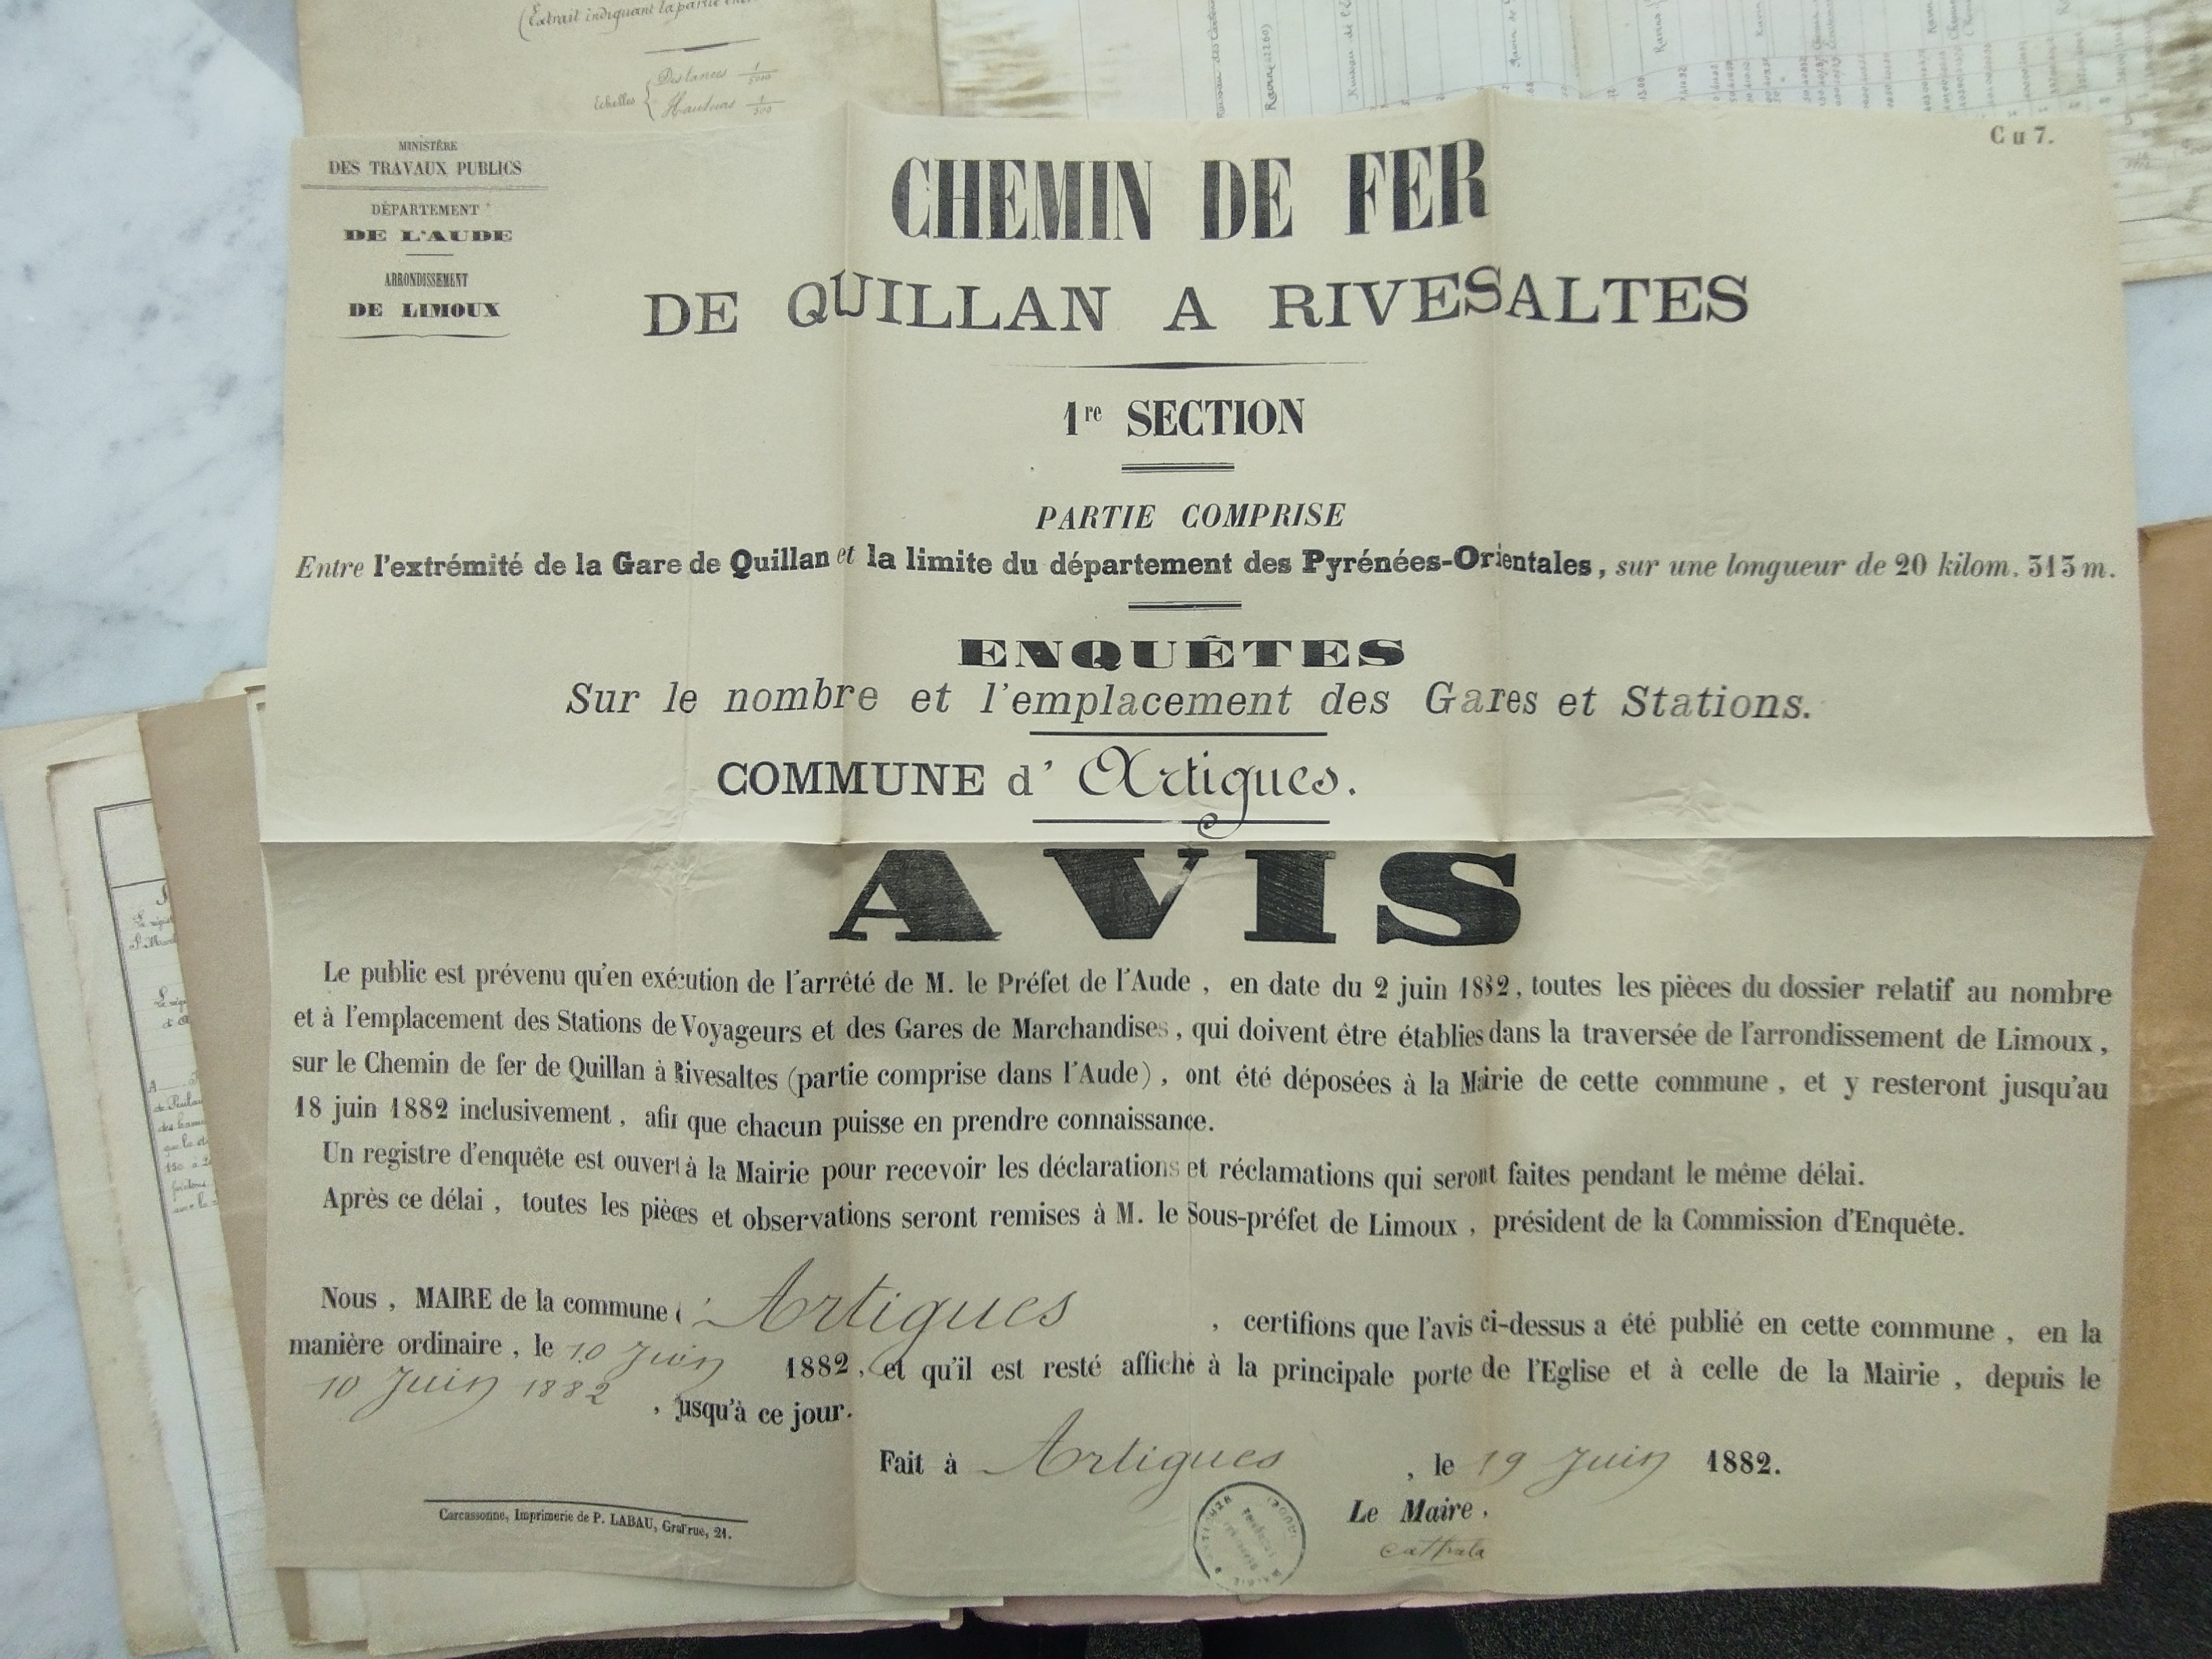 (Extrait indiquant la partie
Echelles
Distances 1/5000
Hauteurs 1/500
C u 7.
MINISTÈRE
DES TRAVAUX PUBLICS
DÉPARTEMENT
DE L'AUDE
ARRONDISSEMENT
DE LIMOUX
CHEMIN DE FER
DE QUILLAN A RIVESALTES
1re SECTION
PARTIE COMPRISE
Entre l'extrémité de la Gare de Quillan et la limite du département des Pyrénées-Orientales, sur une longueur de 20 kilom. 313 m.
ENQUÊTES
Sur le nombre et l'emplacement des Gares et Stations.
COMMUNE d' Artigues.
AVIS
Le public est prévenu qu'en exécution de l'arrêté de M. le Préfet de l'Aude, en date du 2 juin 1882, toutes les pièces du dossier relatif au nombre
et à l'emplacement des Stations de Voyageurs et des Gares de Marchandises, qui doivent être établies dans la traversée de l'arrondissement de Limoux,
sur le Chemin de fer de Quillan à Rivesaltes (partie comprise dans l'Aude), ont été déposées à la Mairie de cette commune, et y resteront jusqu'au
18 juin 1882 inclusivement, afin que chacun puisse en prendre connaissance.
Un registre d'enquête est ouvert à la Mairie pour recevoir les déclarations et réclamations qui seront faites pendant le même délai.
Après ce délai, toutes les pièces et observations seront remises à M. le Sous-préfet de Limoux, président de la Commission d'Enquête.
Nous, MAIRE de la commune d' Artigues, certifions que l'avis ci-dessus a été publié en cette commune, en la
manière ordinaire, le 10 Juin 1882, et qu'il est resté affiché à la principale porte de l'Eglise et à celle de la Mairie, depuis le
10 Juin 1882, jusqu'à ce jour.
Fait à Artigues, le 19 Juin 1882.
Le Maire,
Carcassonne, Imprimerie de P. LABAU, Grand'rue, 21.